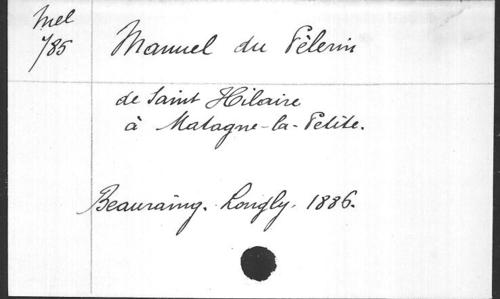 Mel
785
Manuel du Pèlerin
de Saint Hilaire
à Matagne-la-Petite.
Beauraing. Longly. 1886.